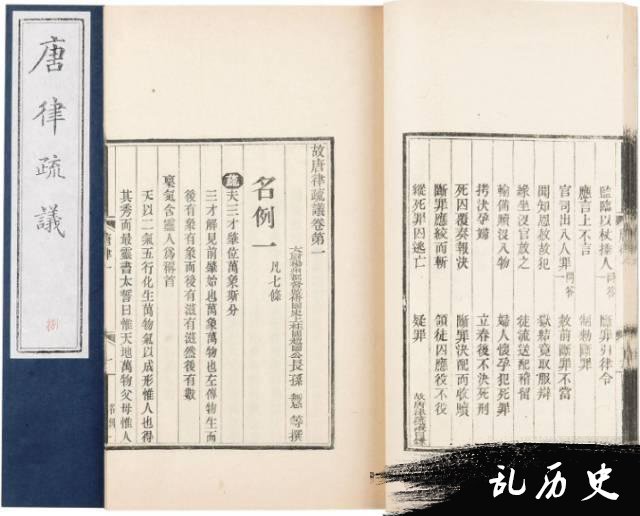 唐律疏議
捌
故唐律疏議卷第一
名例一
凡七條
長孫無忌等撰
疏夫三才肇位萬象斯分
三才解見前肇始也萬象萬物也左傳物生而
後有象象而後有滋有滋然後有數
稟氣含靈人爲稱首
天以二氣五行化生萬物氣以成形惟人也得
其秀而最靈書太誓曰惟天地萬物父母惟人
唐律一
監臨以杖捶人 斷罪引律令
應言上不言 制勅斷罪
官司出入人罪問答 赦前斷罪不當
聞知恩赦故犯 獄結竟取服辯
緣坐沒官放之 徒流送配稽留
輸備贖沒入物 婦人懷孕犯死罪
拷決孕婦 立春後不決死刑
死囚覆奏報決 斷罪決配而收贖
斷罪應絞而斬 領徒囚應役不役
縱死罪囚逃亡 疑罪
故唐律疏議目錄
乱历史